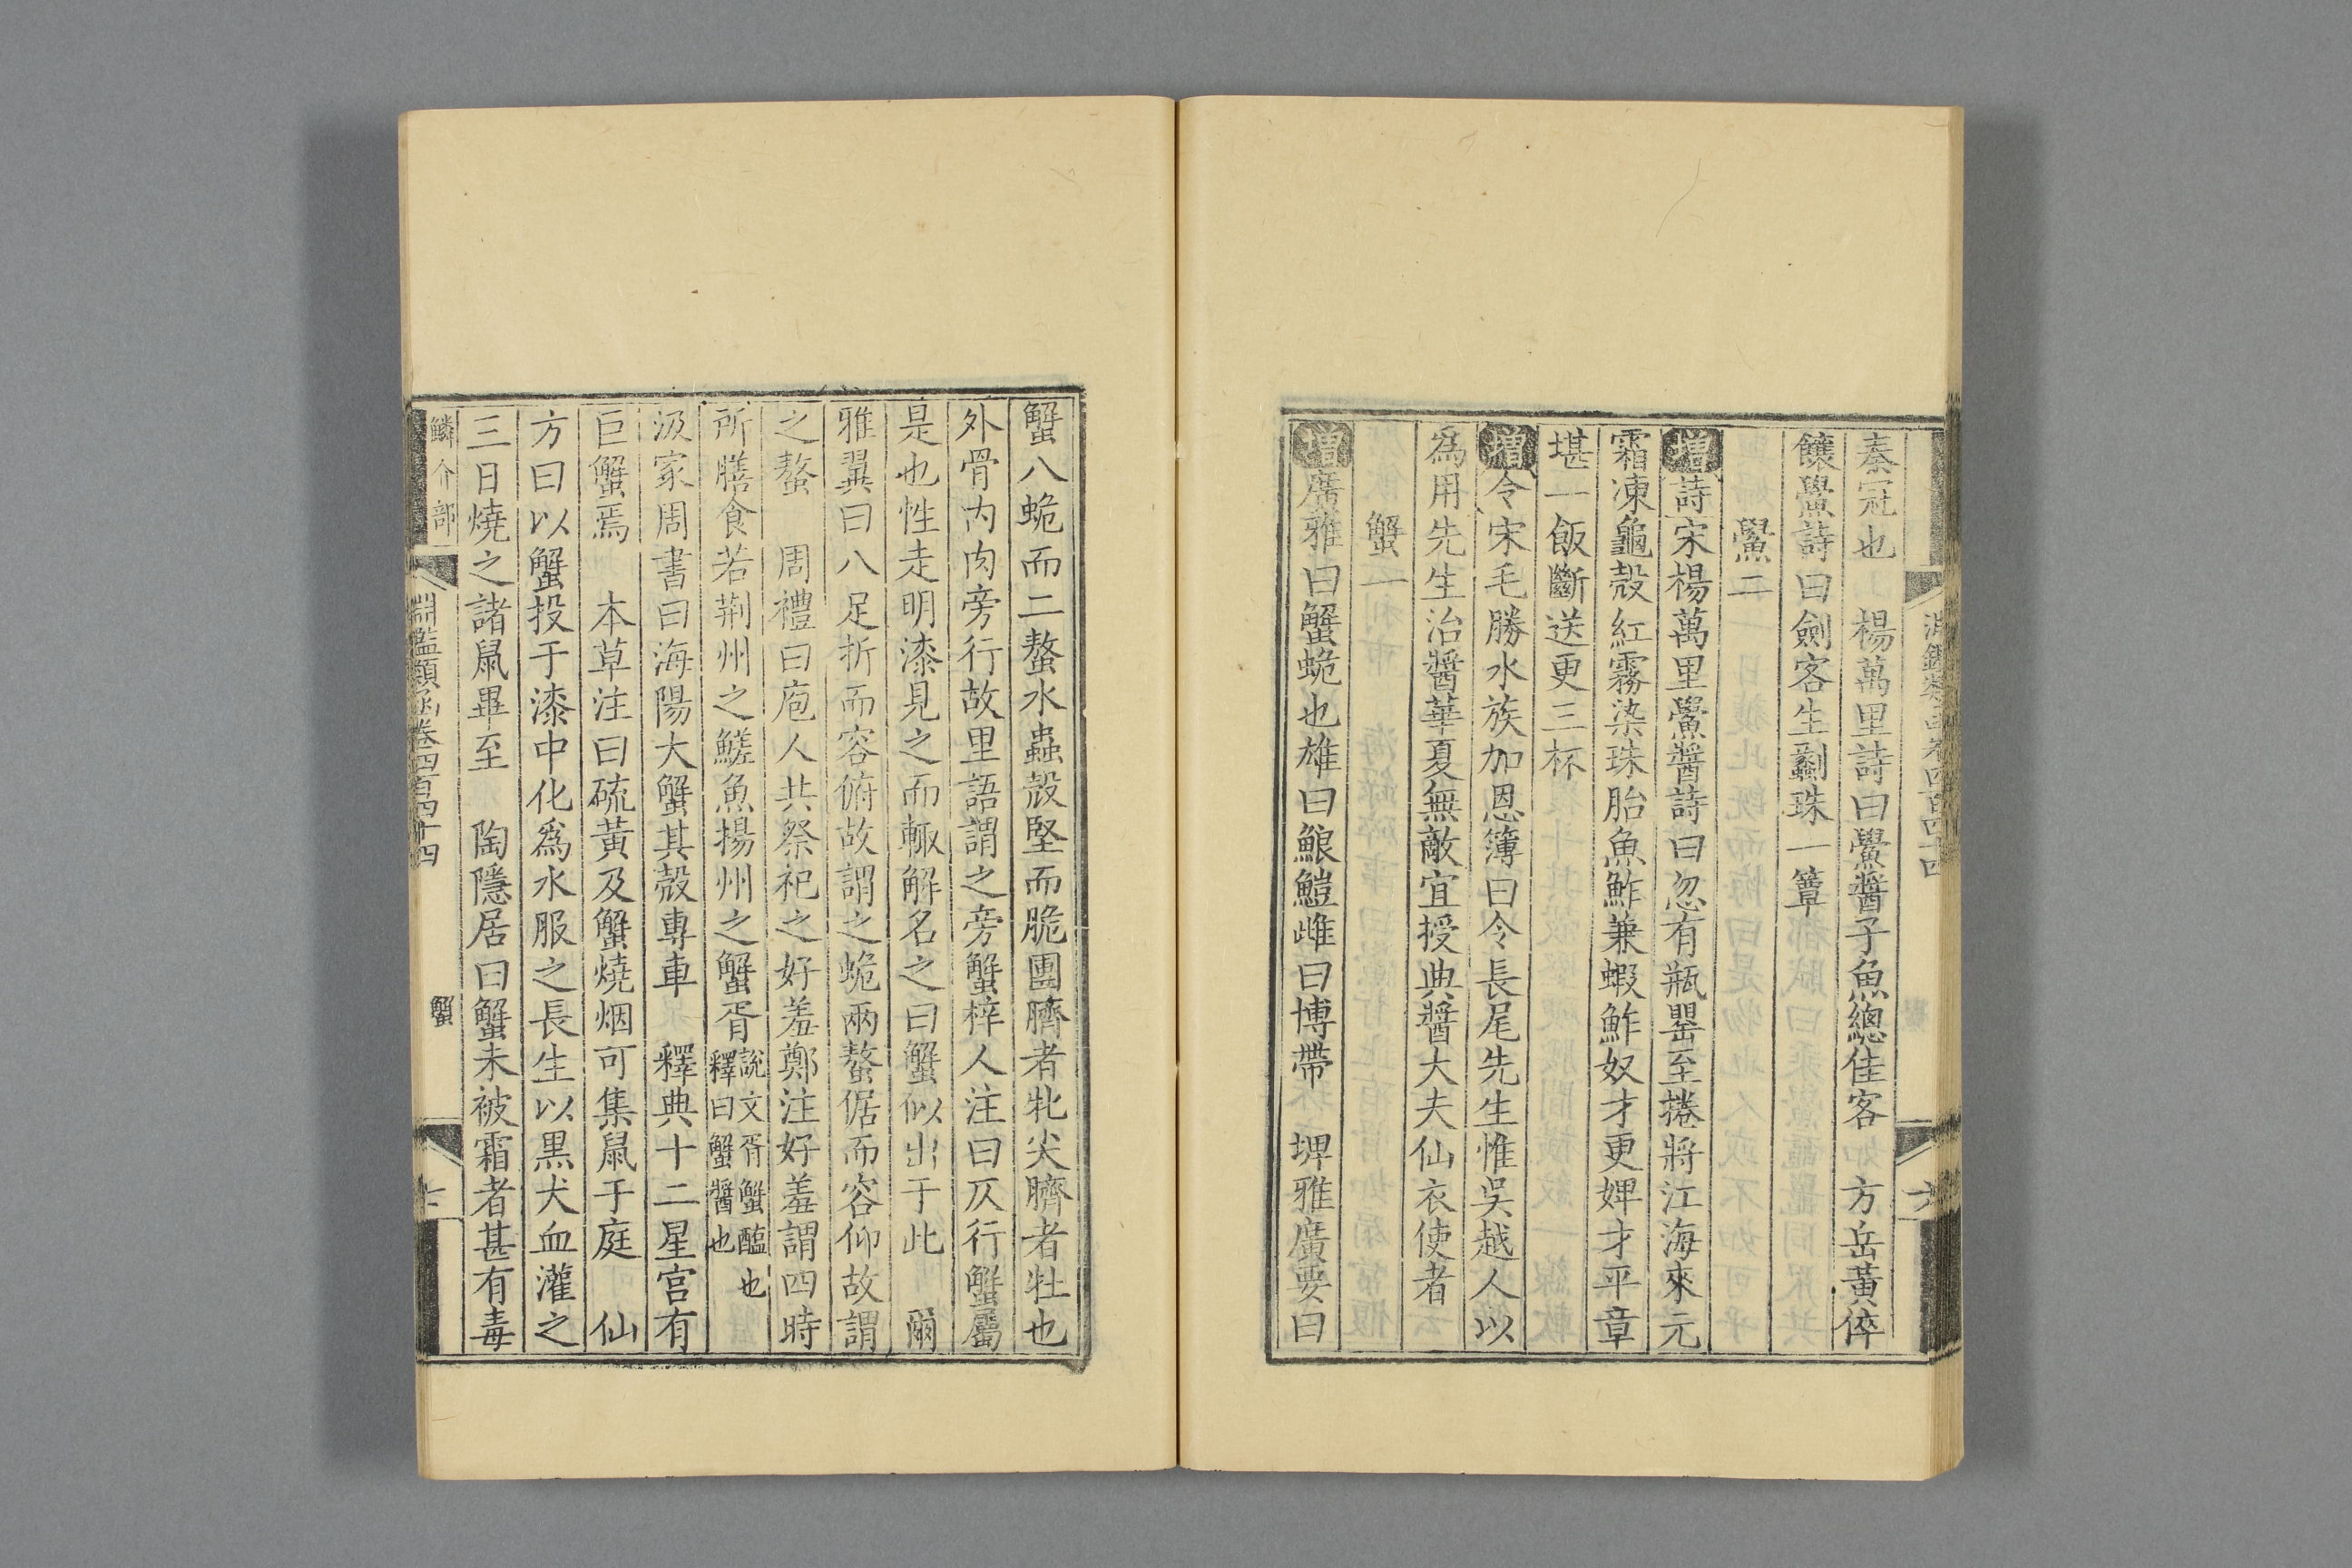 秦冠也　楊萬里詩曰鱟醬子魚總佳客　方岳黃倅
饟鱟詩曰劍客生劙珠一簟
鱟二
增詩宋楊萬里鱟醬詩曰忽有瓶罌至捲將江海來元
霜凍龜殼紅霧染珠胎魚鮓兼蝦鮓奴才更婢才平章
堪一飯斷送更三杯
增令宋毛勝水族加恩簿曰令長尾先生惟吳越人以
爲用先生治醬華夏無敵宜授典醬大夫仙衣使者
蟹一
增廣雅曰蟹蛫也雄曰鯃鱧雌曰博帶　埤雅廣要曰
蟹八蛫而二螯水蟲殼堅而脆團臍者牝尖臍者牡也
外骨內肉旁行故里語謂之旁蟹梓人注曰仄行蟹屬
是也性走明漆見之而輙解名之曰蟹似出于此　爾
雅翼曰八足折而容俯故謂之蛫兩螯倨而容仰故謂
之螯　周禮曰庖人共祭祀之好羞鄭注好羞謂四時
所膳食若荆州之䱹魚揚州之蟹胥說文胥蟹醢也釋曰蟹醬也
汲冢周書曰海陽大蟹其殼專車　釋典十二星宮有
巨蟹焉　本草注曰硫黃及蟹燒烟可集鼠于庭　仙
方曰以蟹投于漆中化爲水服之長生以黑犬血灌之
三日燒之諸鼠畢至　陶隱居曰蟹未被霜者甚有毒
鱗介部　淵鑑類函卷四百四十四　蟹